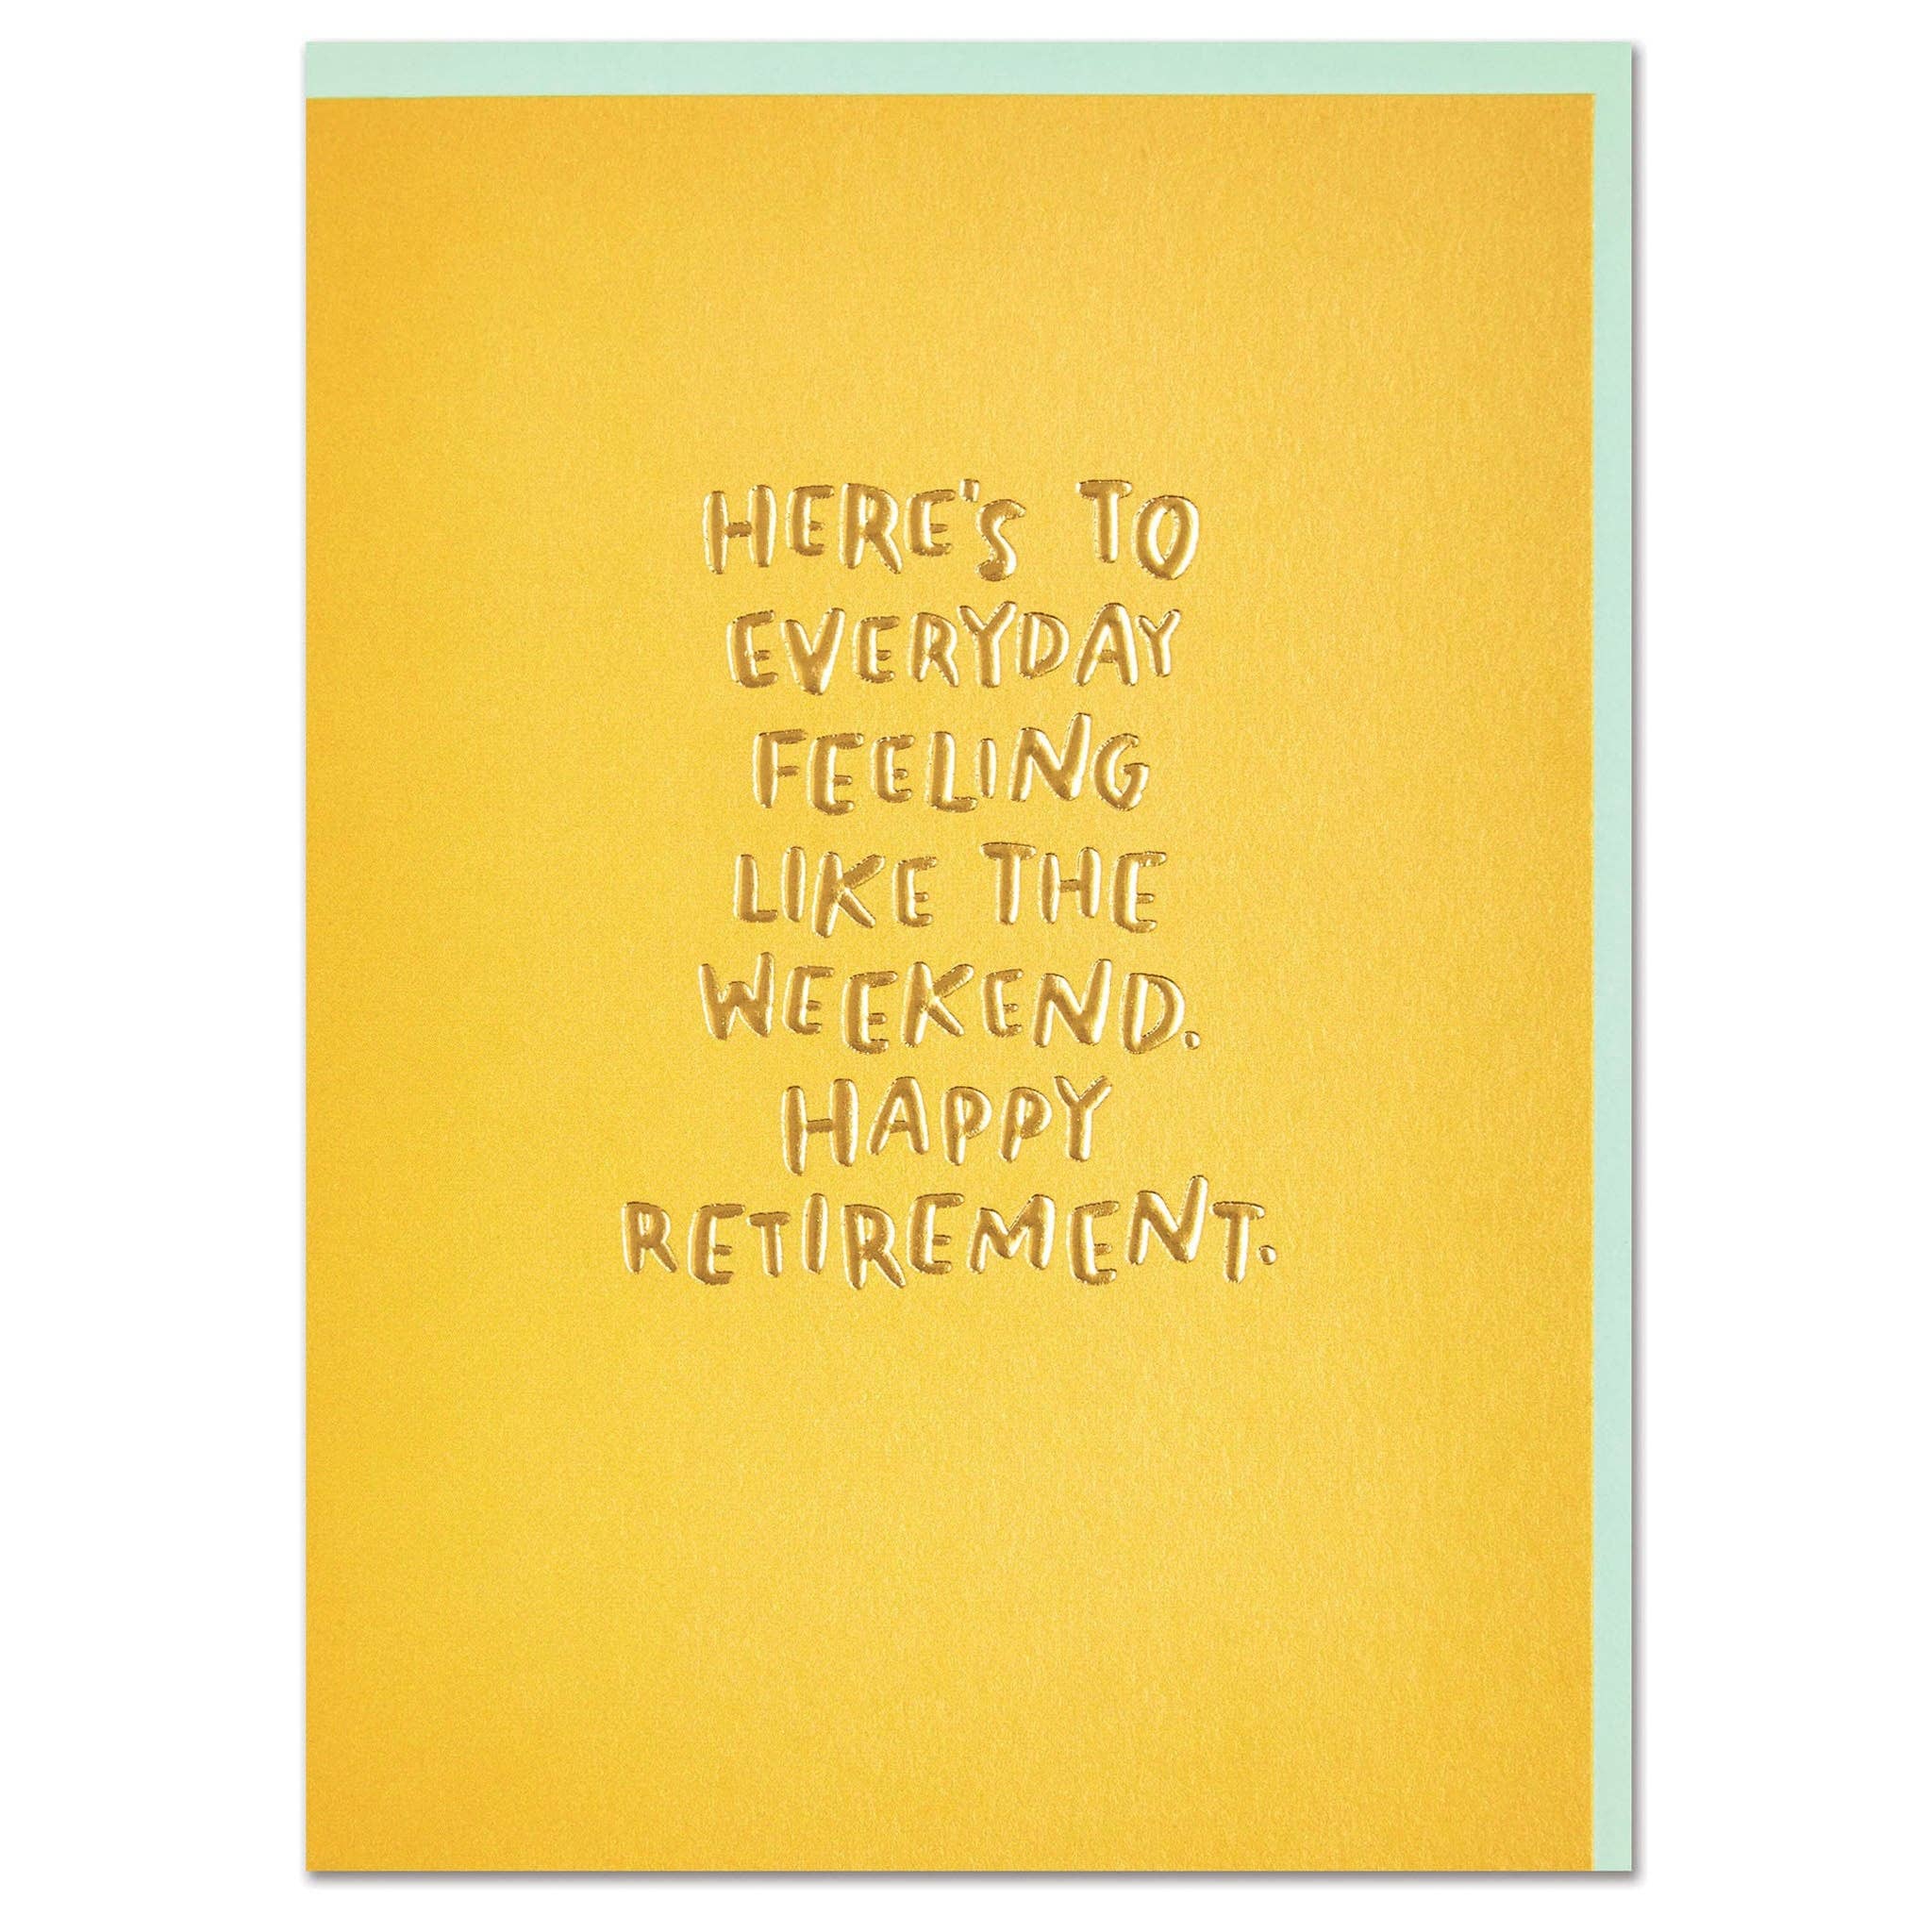 HERE'S TO
EVERYDAY
FEELING
LIKE THE
WEEKEND.
HAPPY
RETIREMENT.